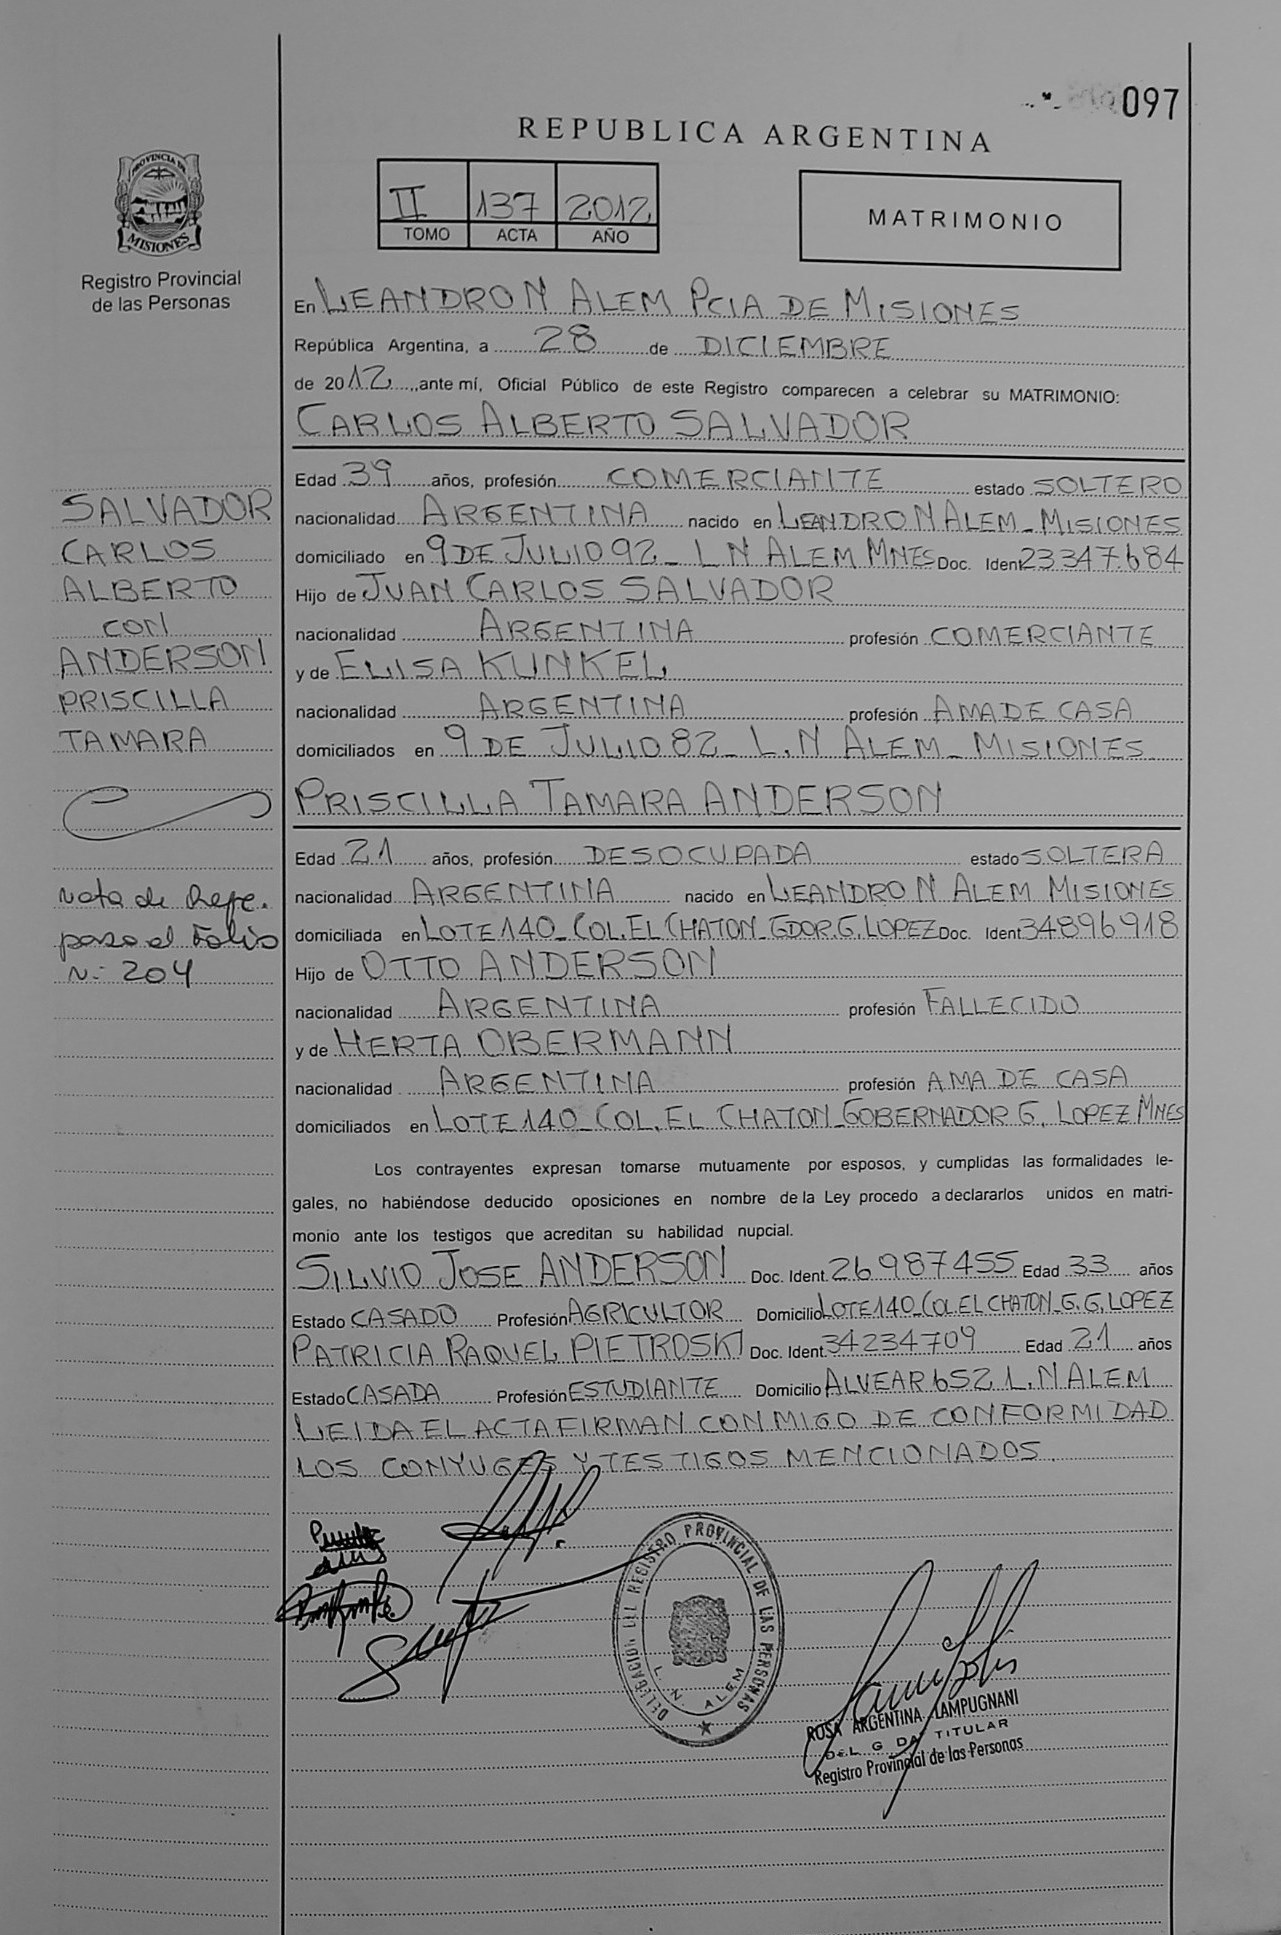 097
REPUBLICA ARGENTINA
PROVINCIA DE
MISIONES
Registro Provincial
de las Personas
II 137 2012
TOMO ACTA AÑO
MATRIMONIO
En LEANDRO N ALEM PCIA DE MISIONES
República Argentina, a 28 de DICIEMBRE
de 2012, ante mí, Oficial Público de este Registro comparecen a celebrar su MATRIMONIO:
CARLOS ALBERTO SALVADOR
Edad 39 años, profesión COMERCIANTE estado SOLTERO
nacionalidad ARGENTINA nacido en LEANDRO N ALEM - MISIONES
domiciliado en 9 DE JULIO 92 - L N ALEM MNES Doc. Ident 23347.684
Hijo de JUAN CARLOS SALVADOR
nacionalidad ARGENTINA profesión COMERCIANTE
y de ELISA KUNKEL
nacionalidad ARGENTINA profesión AMA DE CASA
domiciliados en 9 DE JULIO 82 - L.N ALEM - MISIONES
PRISCILLA TAMARA ANDERSON
Edad 21 años, profesión DESOCUPADA estado SOLTERA
nacionalidad ARGENTINA nacido en LEANDRO N ALEM MISIONES
domiciliada en LOTE 140 - COL. EL CHATON - GDOR. G. LOPEZ Doc. Ident 34896918
Hijo de OTTO ANDERSON
nacionalidad ARGENTINA profesión FALLECIDO
y de HERTA OBERMANN
nacionalidad ARGENTINA profesión AMA DE CASA
domiciliados en LOTE 140 - COL. EL CHATON - GOBERNADOR G. LOPEZ MNES
Los contrayentes expresan tomarse mutuamente por esposos, y cumplidas las formalidades le-
gales, no habiéndose deducido oposiciones en nombre de la Ley procedo a declararlos unidos en matri-
monio ante los testigos que acreditan su habilidad nupcial.
SILVIO JOSE ANDERSON Doc. Ident. 26987455 Edad 33 años
Estado CASADO Profesión AGRICULTOR Domicilio LOTE 140 - COL. EL CHATON - G. G. LOPEZ
PATRICIA RAQUEL PIETROSKI Doc. Ident. 34234709 Edad 21 años
Estado CASADA Profesión ESTUDIANTE Domicilio ALVEAR 652 L. N ALEM
LEIDA EL ACTA FIRMAN CONMIGO DE CONFORMIDAD
LOS CONYUGES Y TESTIGOS MENCIONADOS.
SALVADOR
CARLOS
ALBERTO
CON
ANDERSON
PRISCILLA
TAMARA
Nota de Refe.
pasa al Folio
N- 204
DELEGACION DEL REGISTRO PROVINCIAL DE LAS PERSONAS
L. N. ALEM
ROSA ARGENTINA LAMPUGNANI
TITULAR
Registro Provincial de las Personas